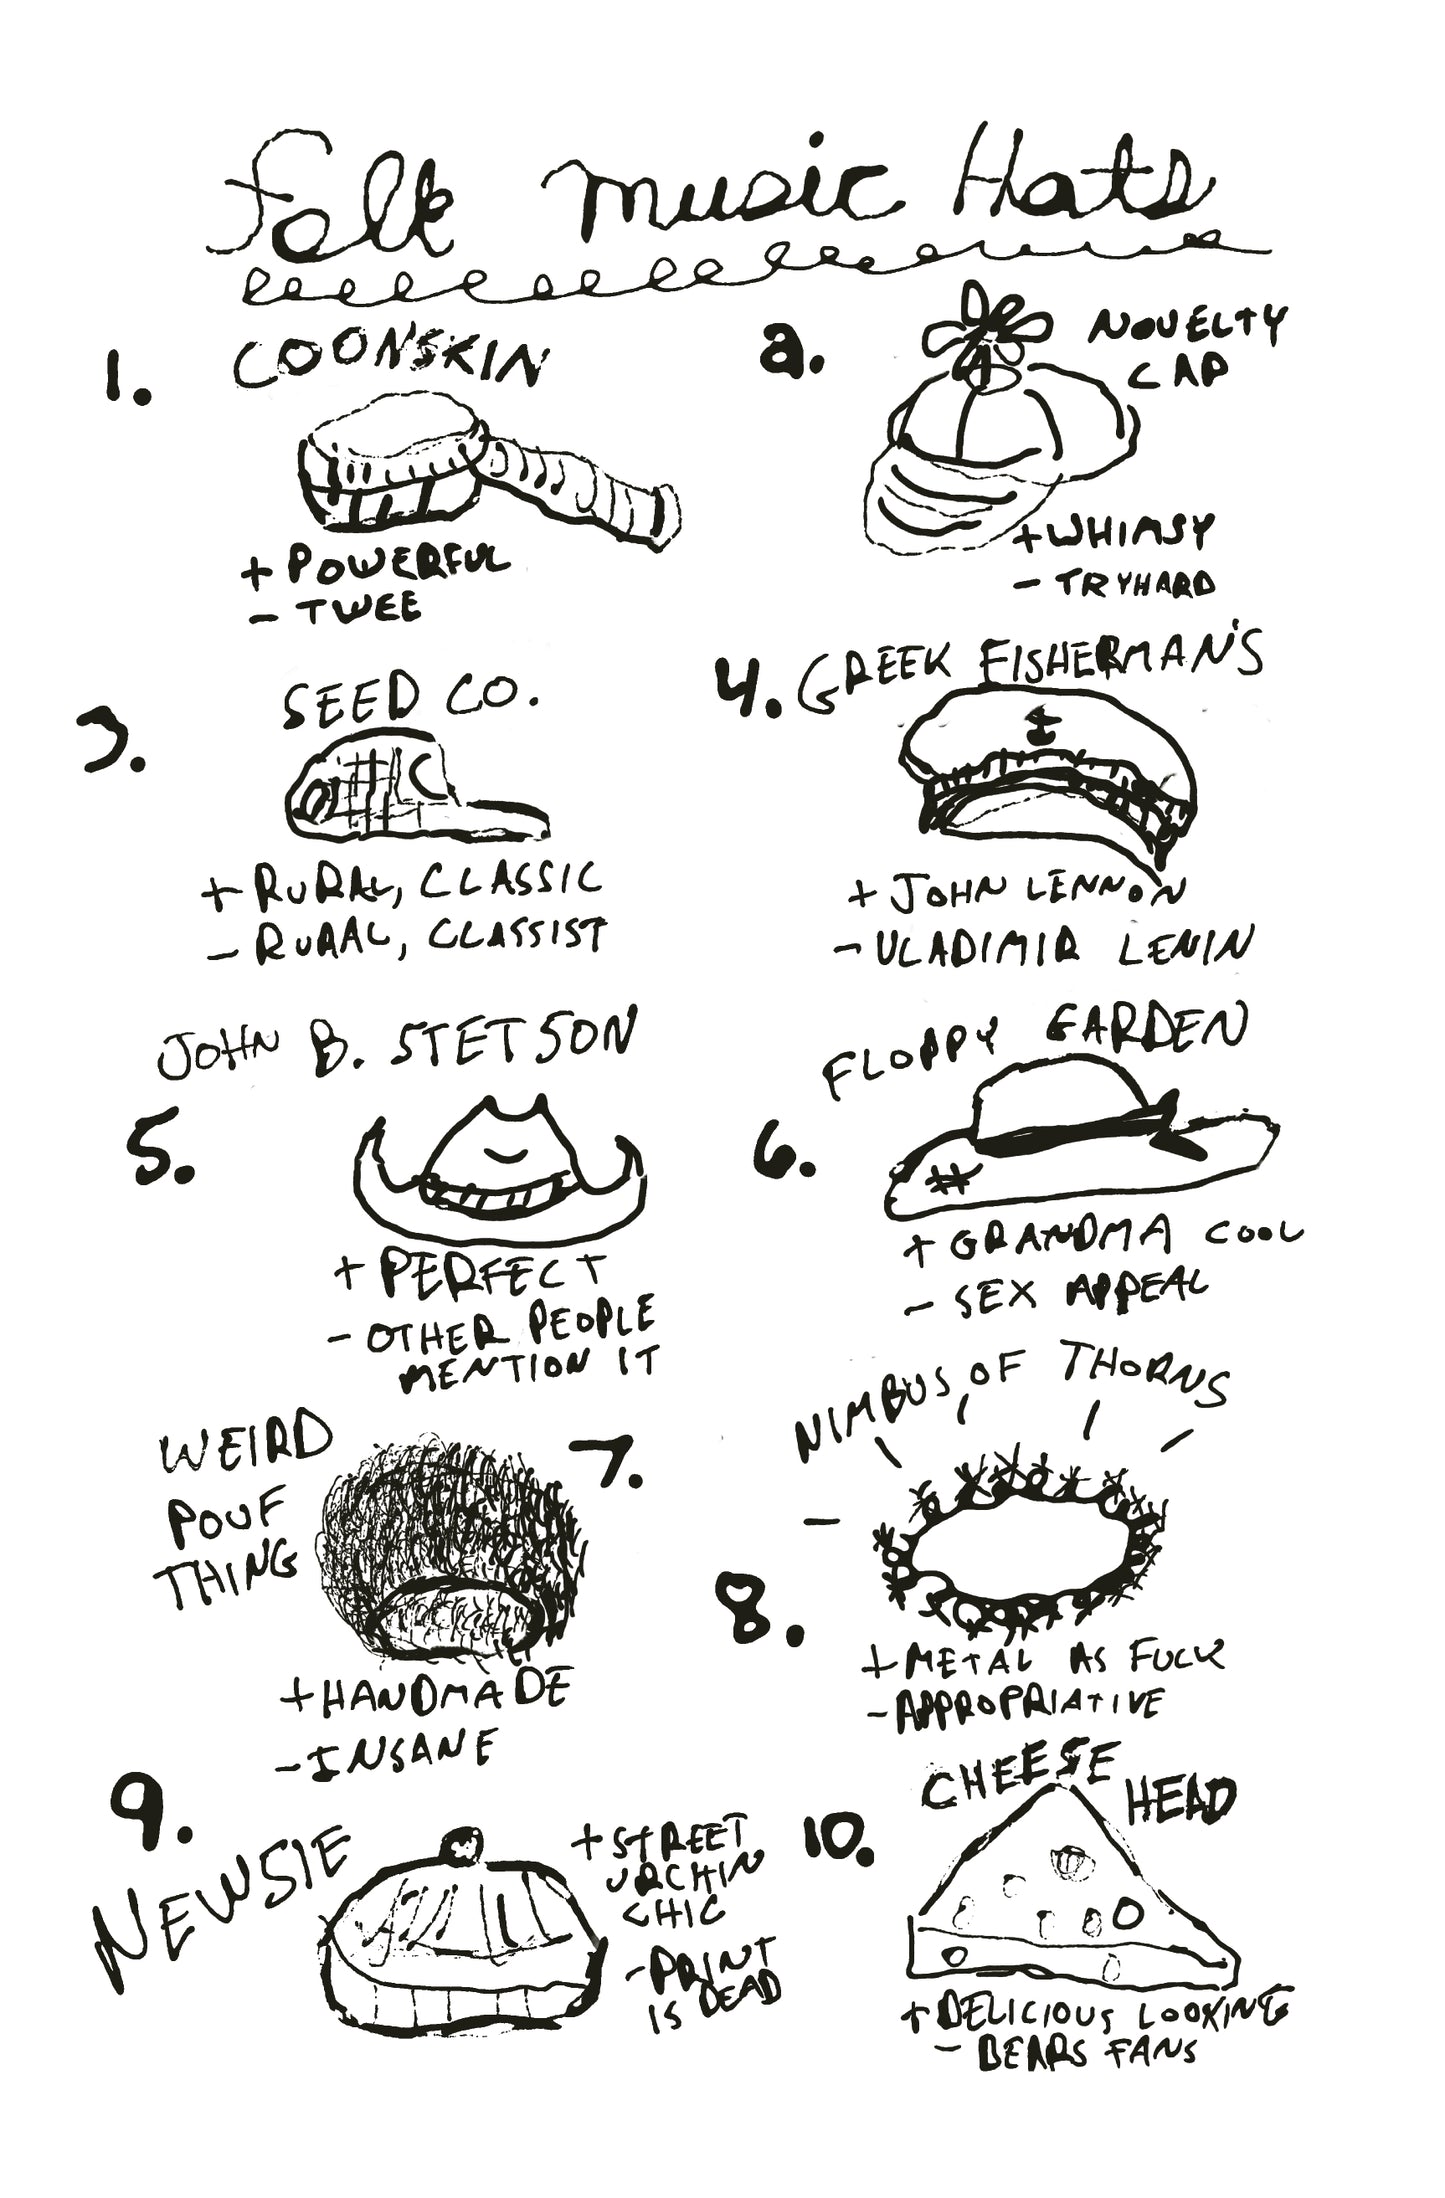 Folk music Hats
1.
COONSKIN
+ POWERFUL
- TWEE
2.
NOVELTY
CAP
+ WHIMSY
- TRYHARD
3.
SEED CO.
+ RURAL, CLASSIC
- RURAL, CLASSIST
4. GREEK FISHERMAN'S
+ JOHN LENNON
- VLADIMIR LENIN
JOHN B. STETSON
5.
+ PERFECT
- OTHER PEOPLE
MENTION IT
FLOPPY GARDEN
6.
+ GRANDMA COOL
- SEX APPEAL
WEIRD
POUF
THING
7.
+ HANDMADE
- INSANE
NIMBUS OF THORNS
8.
+ METAL AS FUCK
- APPROPRIATIVE
9.
NEWSIE
+ STREET
URCHIN
CHIC
- PRINT
IS DEAD
10.
CHEESE
HEAD
+ DELICIOUS LOOKING
- BEARS FANS